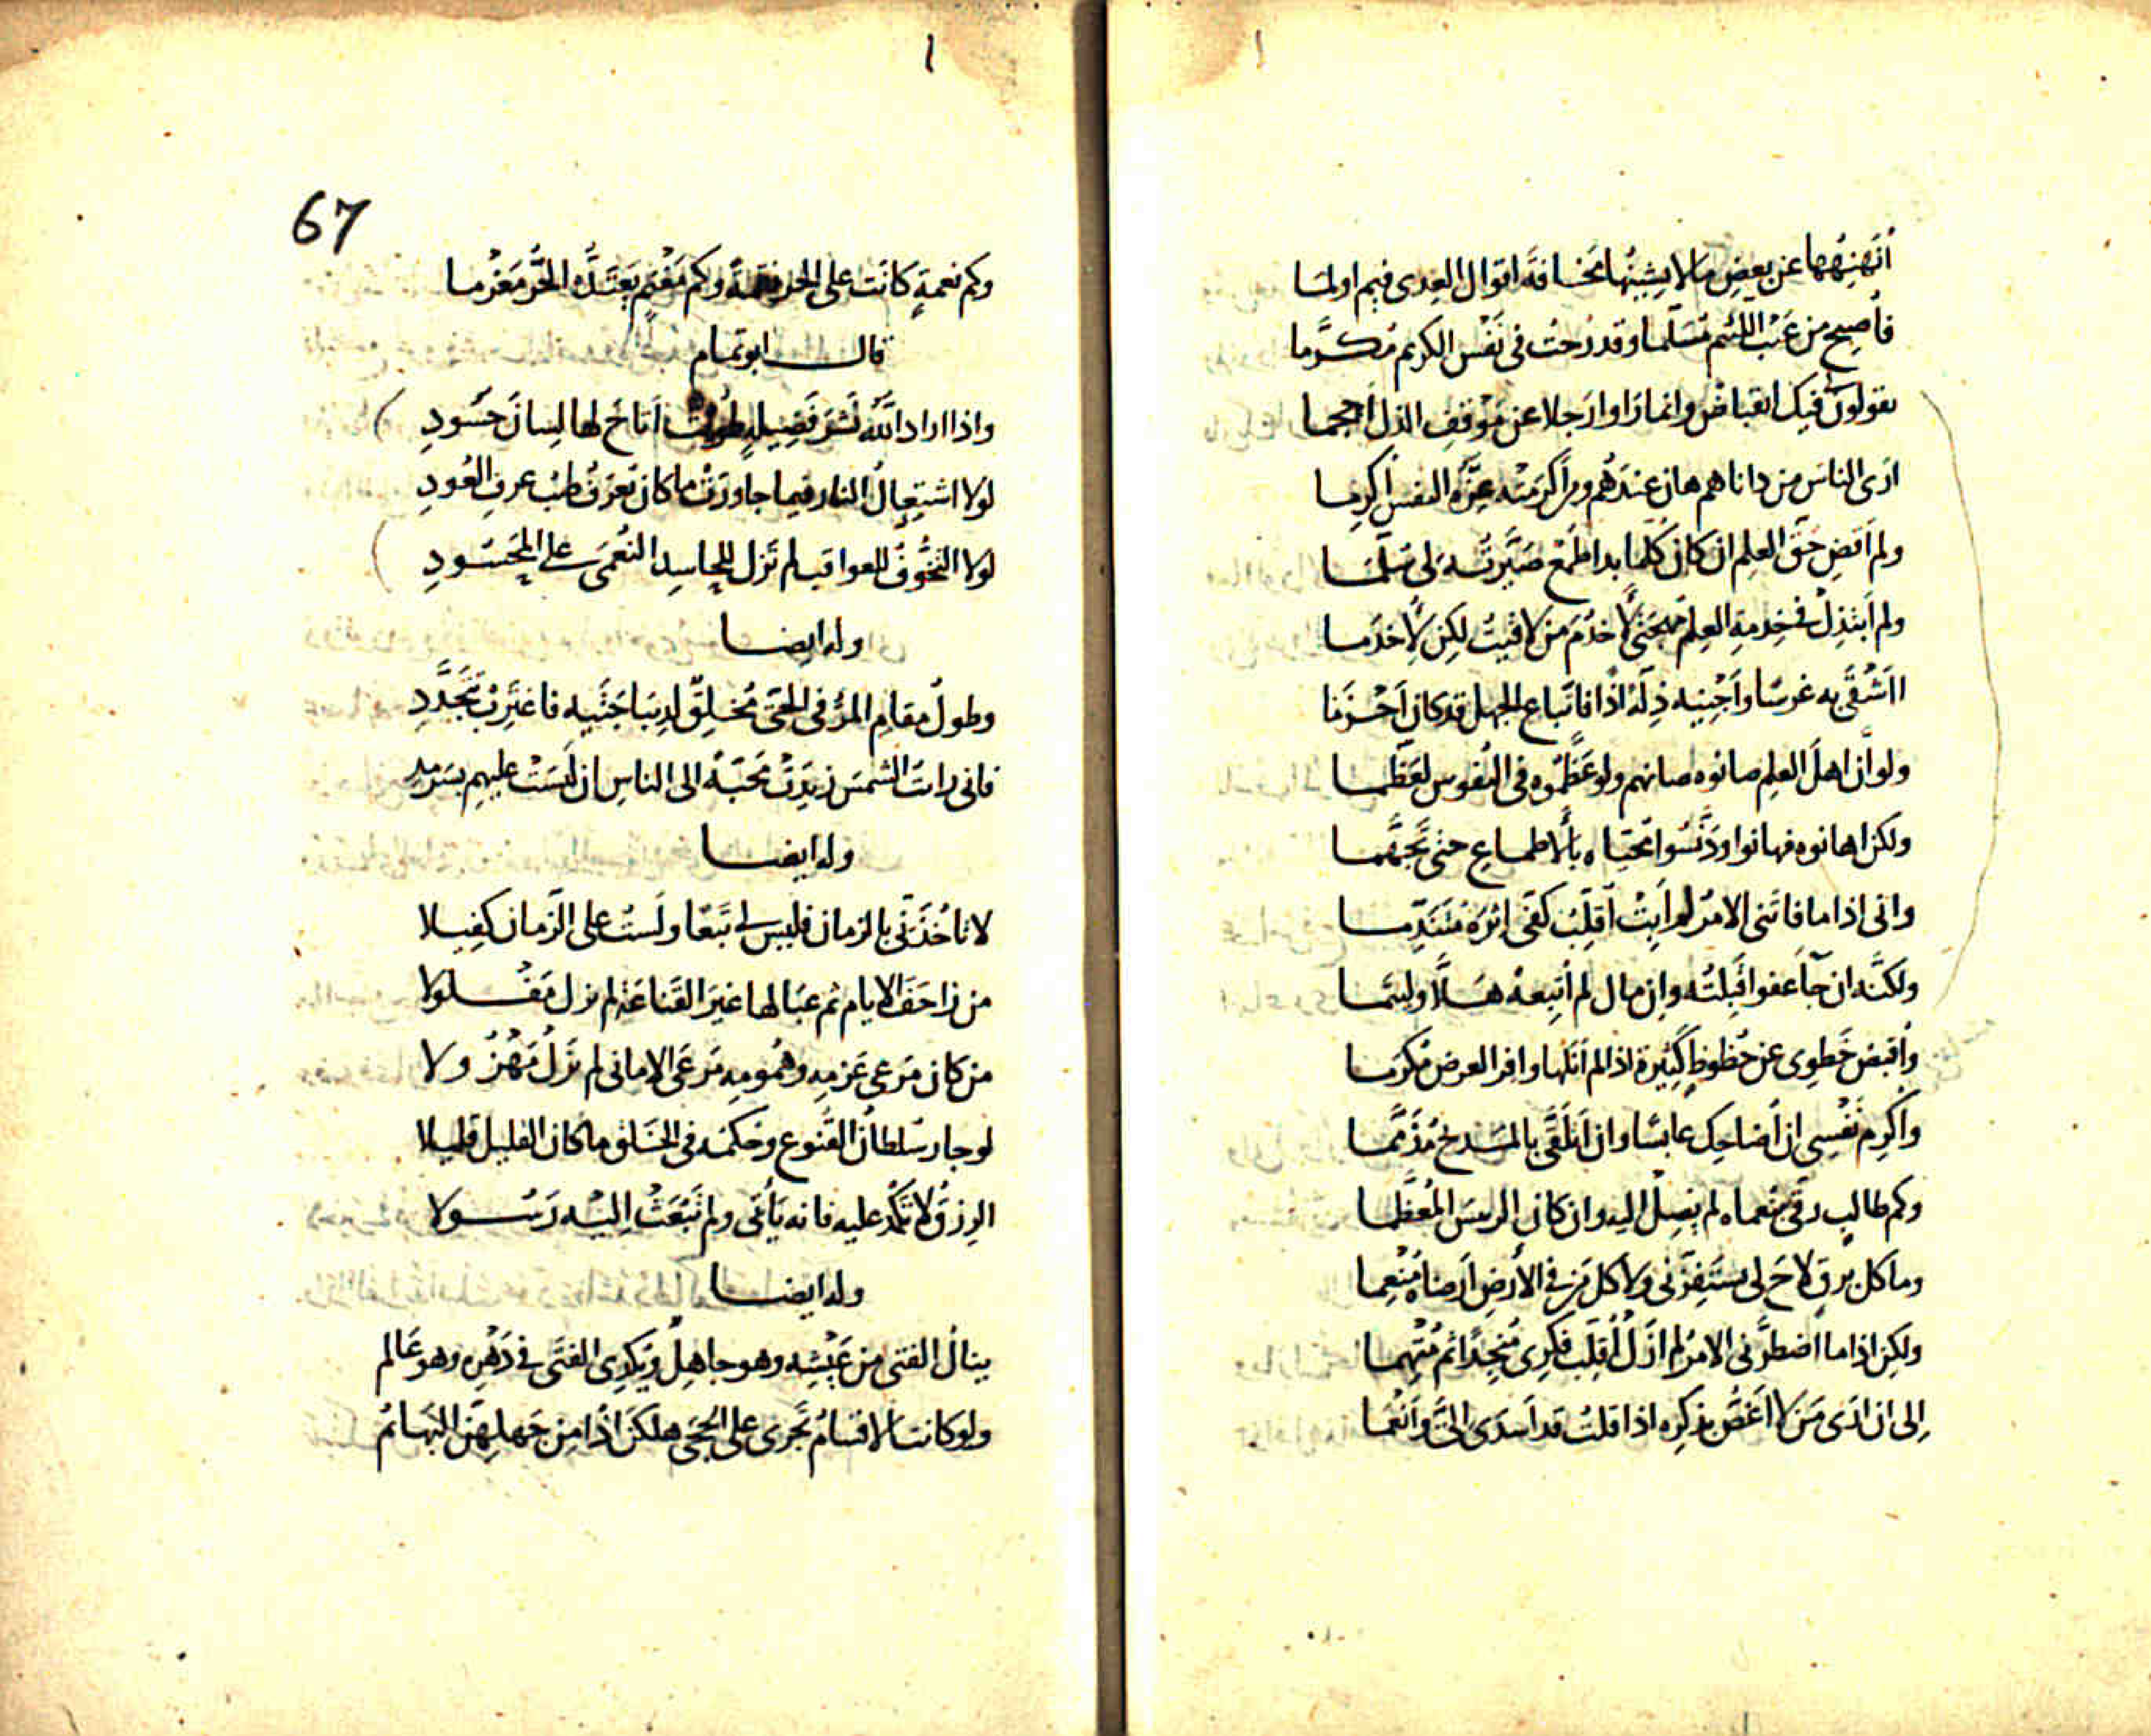 أُنَهْنِهُها عن بعضِ ما لا يشينُها مخافةَ اقوال العِدى فيم اولما
فأُصبح من عَتْب اللئيم مُسَلَّما وقد رُحت فى نَفْس الكريم مُكرَّما
يقولون فيك انقباضٌ وانما رَاوا رَجلا عن مَوْقفِ الذل احجما
ارَى الناسَ من داناهم هان عندَهُم ومن أكرمَتْه عِزَّة النفس أكرِما
ولم اَقضِ حَقَّ العلِم ان كان كُلّما بدا طَمَع صَيَّرتُه لى سُلَّما
ولم أَبتذِلْ فى خِدمةِ العِلم مُهجتى لأَخدُمَ من لاقيتُ لكن لِأُخدَما
أاَشْقَى به غرسًا واَجْنيه ذِلّةً اذًا فاتّباع الجهل قد كان اَحْزَما
ولو أنّ اهلَ العلِم صانوه صانهم ولو عَظَّمُوه فى النُفوس لعُظّما
ولكن اهانوه فهانوا ودَنَّسُوا مُحيّاه بالأطماعِ حتى تَجَهَّما
وانى اذا ما فاتَنى الامرُ لم اَبِتْ اُقلِّبُ كَفّى اثرَه مُتَندِّما
ولكنَّه ان جآءَ عفوا قَبِلتُه وان مال لم اُتبِعهُ هَلَّا وليتما
وأقبِض خَطوِى عن حُظوظٍ كثيرة اذا لم اَنَلها وافر العِرض مُكرَما
واُكرِم نَفْسِى ان أُضاحِك عابسًا وان اَتَلقَّى بالمَديح مُذمَّما
وكم طالب رِقّى بنُعماه لم يصِلْ اليه وان كان الرئيسَ المُعظَّما
وما كل برقٍ لاحَ لى يستَفِزّنى ولا كل مَن فى الأرضِ اَرضاه مُنْعِما
ولكن اذا ما اضطرّنى الامرُ لم ازَلْ أُقلِّب فكرى مُنجِدًا ثم مُتْهِما
إلى ان ارَى مَن لا اَغَصُّ بذكرِه اذا قلت قد اَسدَى الىَّ واَنْعَما
67
وكم نعمةٍ كانَت على الحر نقمةً وكم مَغْنمٍ يَعتَدُّه الحُرّ مَغْرَما
قال ابو تمام
واذا اراد اللّٰه نَشرَ فَضِيلةٍ طُوِيَتْ اَتاحَ لها لِسانَ حَسُودِ
لولا اشتِعالُ النار فيما جاورَتْ ما كان يُعرَفُ طيبُ عرف العُودِ
لولا التخَوُّفُ للعواقب لم تَزل للحاسِد النُعمَى على المحسُودِ
وله ايضا
وطولُ مقام المرْءِ فى الحَىّ مُخلِقٌ لديبَاجَتَيه فاغترِبْ تَتَجدَّدِ
فانى رايتُ الشمسَ زيدَتْ مَحَبّةً الى الناسِ ان لَيسَتْ عليهِم بسَرْمدِ
وله ايضا
لا تاخُذَنّى بالزمان فليس لى تَبَعًا ولَستُ على الزّمان كفيلا
من زاحَفَ الايام ثم عَبا لها غيرَ القَناعَة لم يزل مَفْلولا
من كان مَرعى عَزمِه وهُمومِه مَرعَى الامانى لم يَزَلْ مَهْزُولا
لو جار سُلطانُ القُنوع وحُكمُه فى الخَلق ما كان القليل قليلا
الرزقُ لا تَكْمَد عليه فانه يَأتى ولم تَبْعَثْ اليْه رَسُولا
وله ايضا
ينالُ الفتى من عَيْشِه وهو جاهِلٌ ويُكدِى الفتَى فى دَهْرِه وهو عَالم
ولو كانت الاقسامُ تَجرى على الحِجَى هلكنَ اذًا مِن جَهلِهنّ البَهائمُ